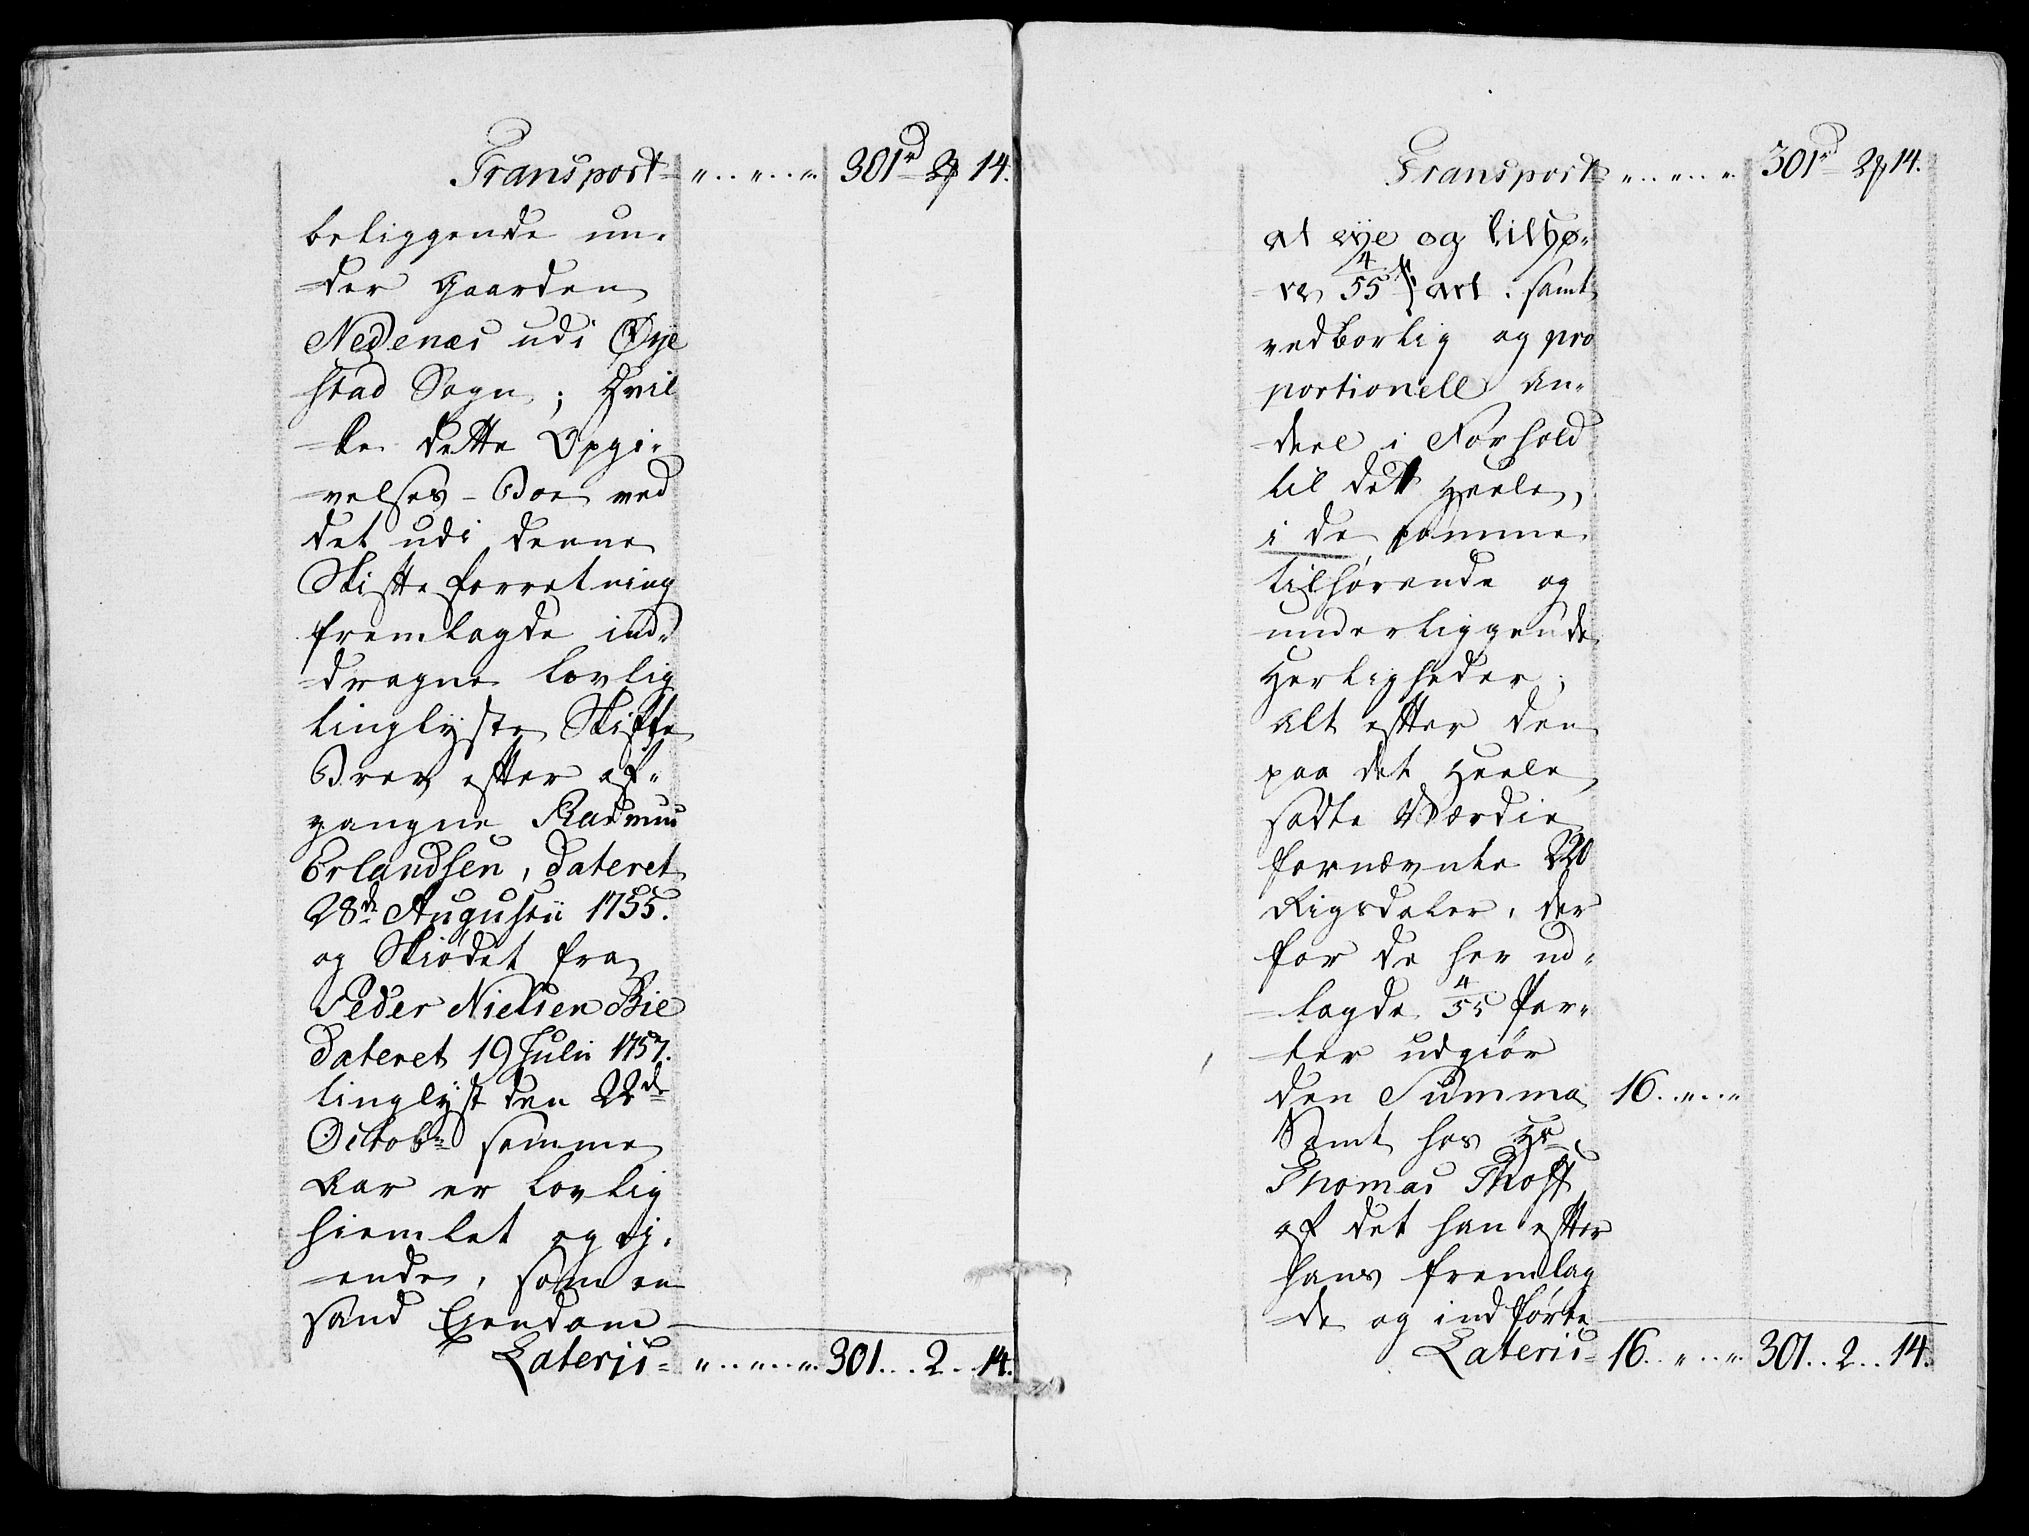 Transport = „ .. „ .. „ 301rd 2 14.
beliggende un-
der Gaarden
Nedenæs udi Øye
stad Sogn; Hvil
ke dette Opgi-
velses-Boe ved
det udi denne
Skifte forretning
fremlagde ind-
dragne lovlig
tinglyste Skifte
Brev efter af-
gangne Rasmus
Erlandsen, dateret
28de Augustii 1755.
og Skiødet fra
Peder Nielsen Bie
dateret 19 Julii 1757.
tinglyst den 22de
Octobr samme
Aar er lovlig
hiemlet og ej-
ende, som en
sand Ejendom
Lateris = „ .. „ .. „ 301 .. 2 .. 14.
Transport = „ .. „ .. „ 301rd 2 14.
at eye og tilhø-
re 4/55 Part. samt
vedbørlig og pro
portionell An-
deel i Forhold
til dett Heele,
i de samme
tilhørende og
underliggende
Herligheder;
alt efter den
paa det Heele
sadte Værdie
fornævnte 220
Rigsdaler, der
for de her ud-
lagde 4/55 Par-
ter udgiør
den Summa 16 .. „ .. „
Samt hos Hr
Thomas Thoff
af det han efter
hans fremlag
de og indførte
Lateris = 16 .. „ .. „ 301 .. 2 .. 14.